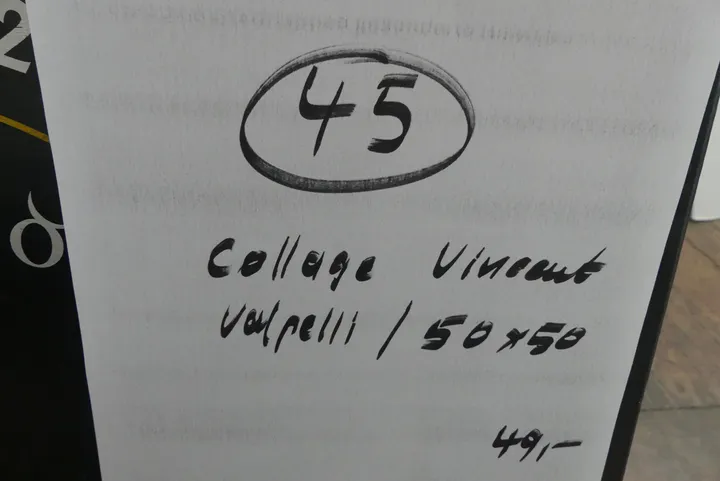 45
Collage Vincent
Valpelli / 50x50
49,-
2